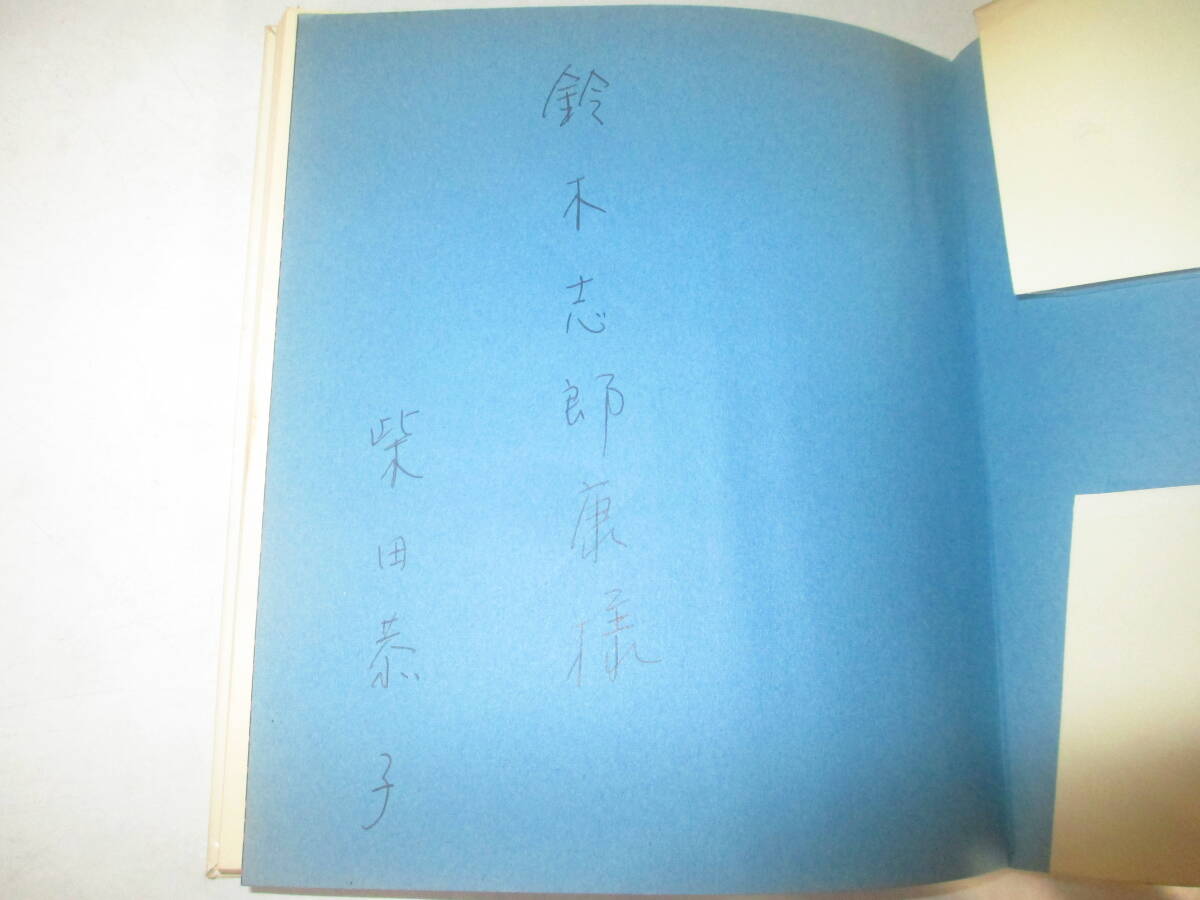 鈴木志郎康様
柴田恭子